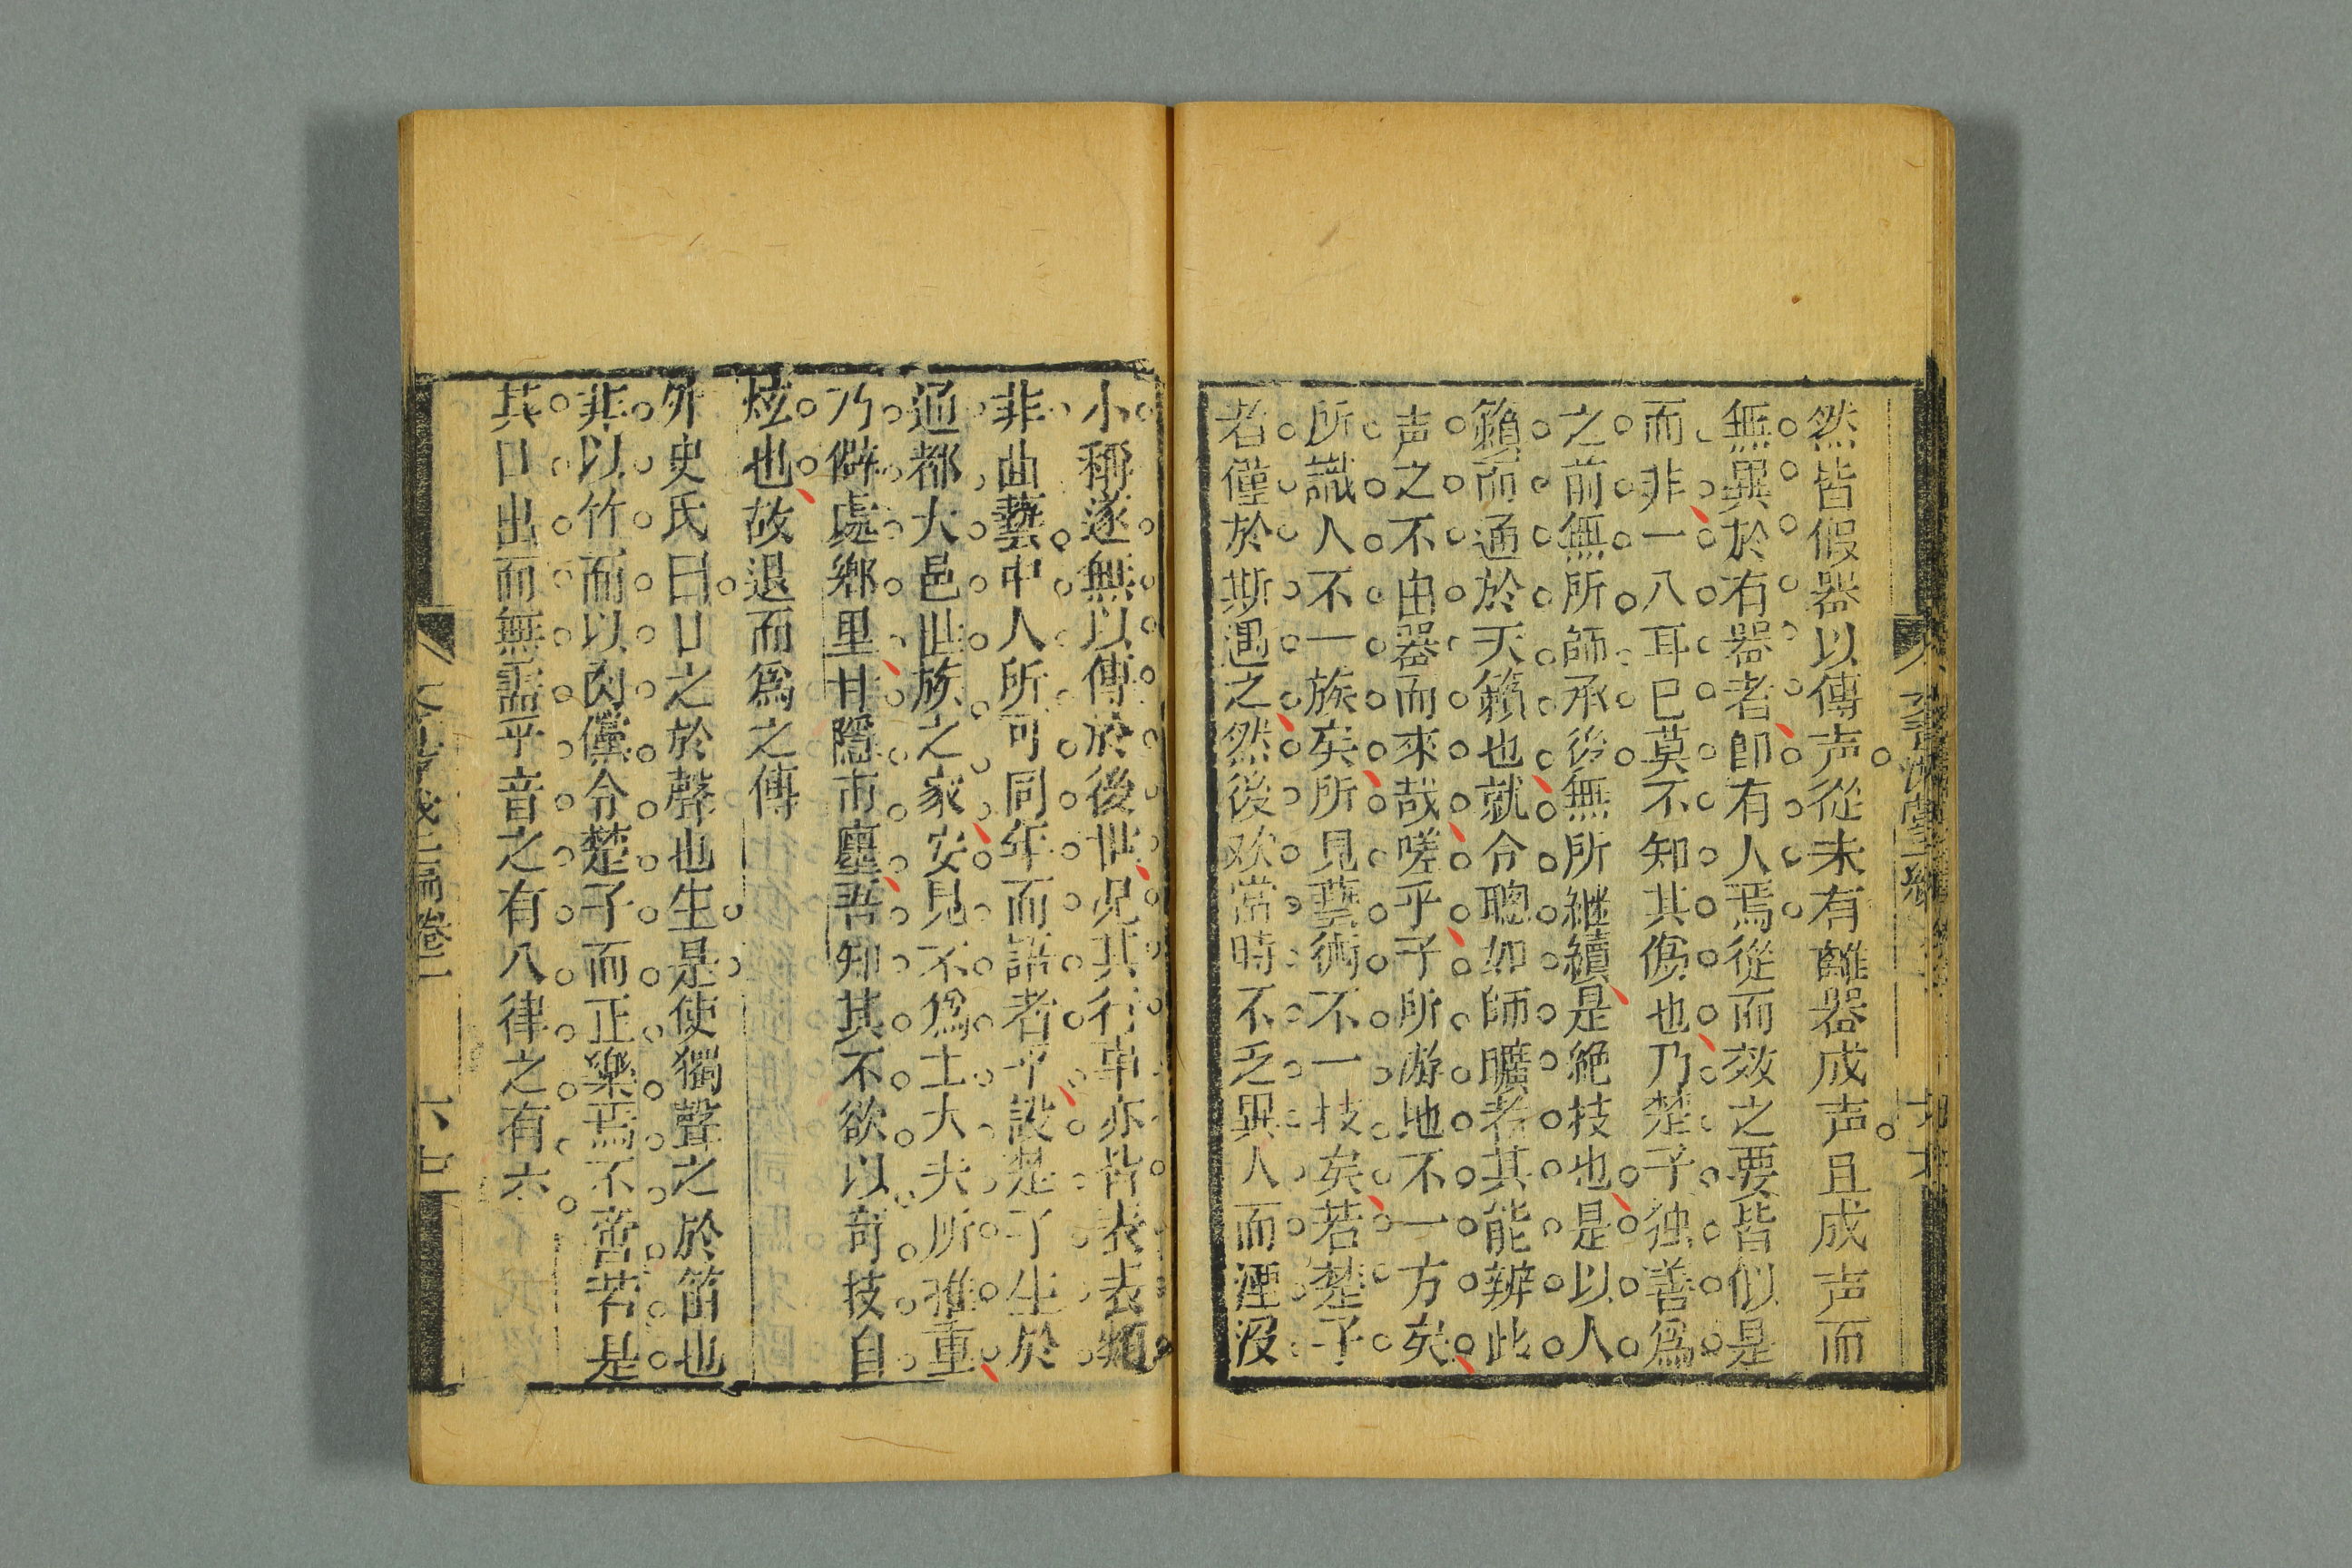 然皆假器以傳声從未有離器成声且成声而
無異於有器者即有人焉從而效之要皆似是
而非一八耳已莫不知其僞也乃楚子独善爲
之前無所師承後無所継續是絶技也是以人
籟而通於天籟也就令聰如師曠者其能辨此
声之不由器而來哉嗟乎子所游地不一方矣
所識人不一族矣所見藝術不一技矣若楚子
者僅於斯遇之然後欢當時不乏異人而湮没
小稱遂無以傳於後世况其行事亦皆表表頪
非曲藝中人所可同年而語者乎設楚子生於
通都大邑世族之家安見不爲士大夫所推重
乃僻處鄉里甘隱市廛吾知其不欲以奇技自
炫也故退而爲之傳
外史氏曰口之於聲也生是使獨聲之於笛也
非以竹而以肉儻令楚子而正樂焉不啻若是
其口出而無盂乎音之有八律之有六
卷一